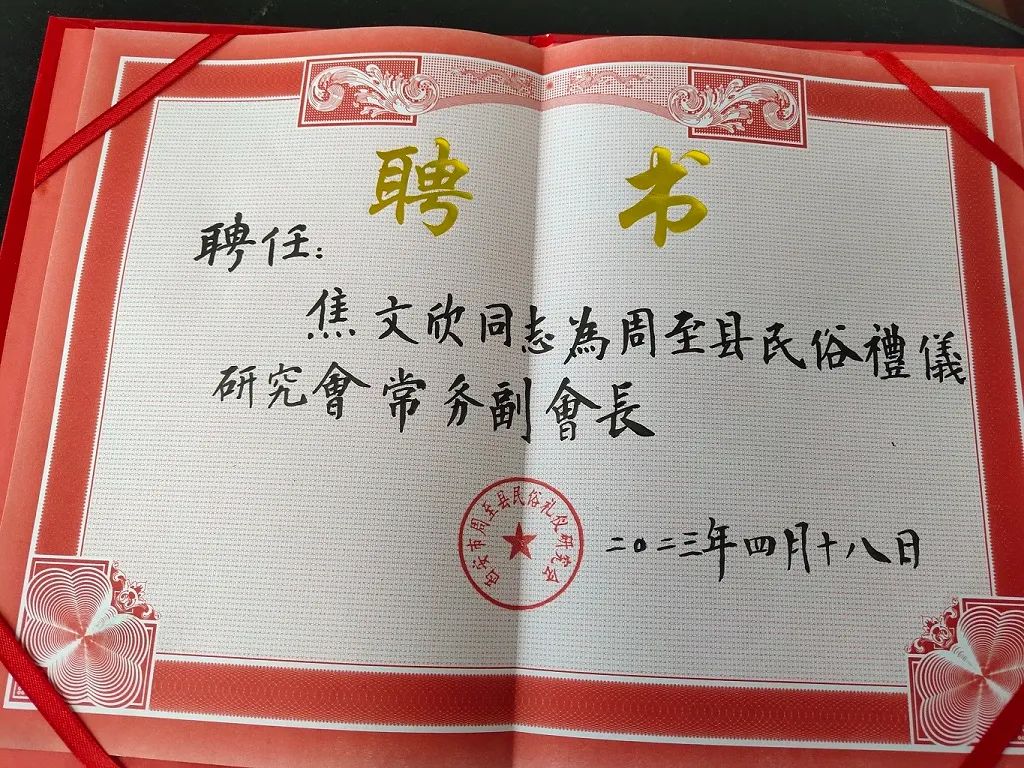 聘书
聘任:
焦文欣同志為周至县民俗禮儀
研究會常务副會長
西安市周至县民俗礼仪研究会
二0二三年四月十八日